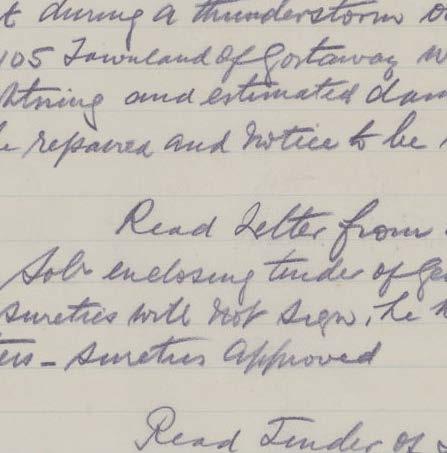 t during a thunderstorm
105 Townland of Gortaway
htning and estimated dam
e repaired and notice to be
Read Letter from
Solr enclosing tender of Ge
sureties will not sign, he
ters - sureties approved
Read Tender of